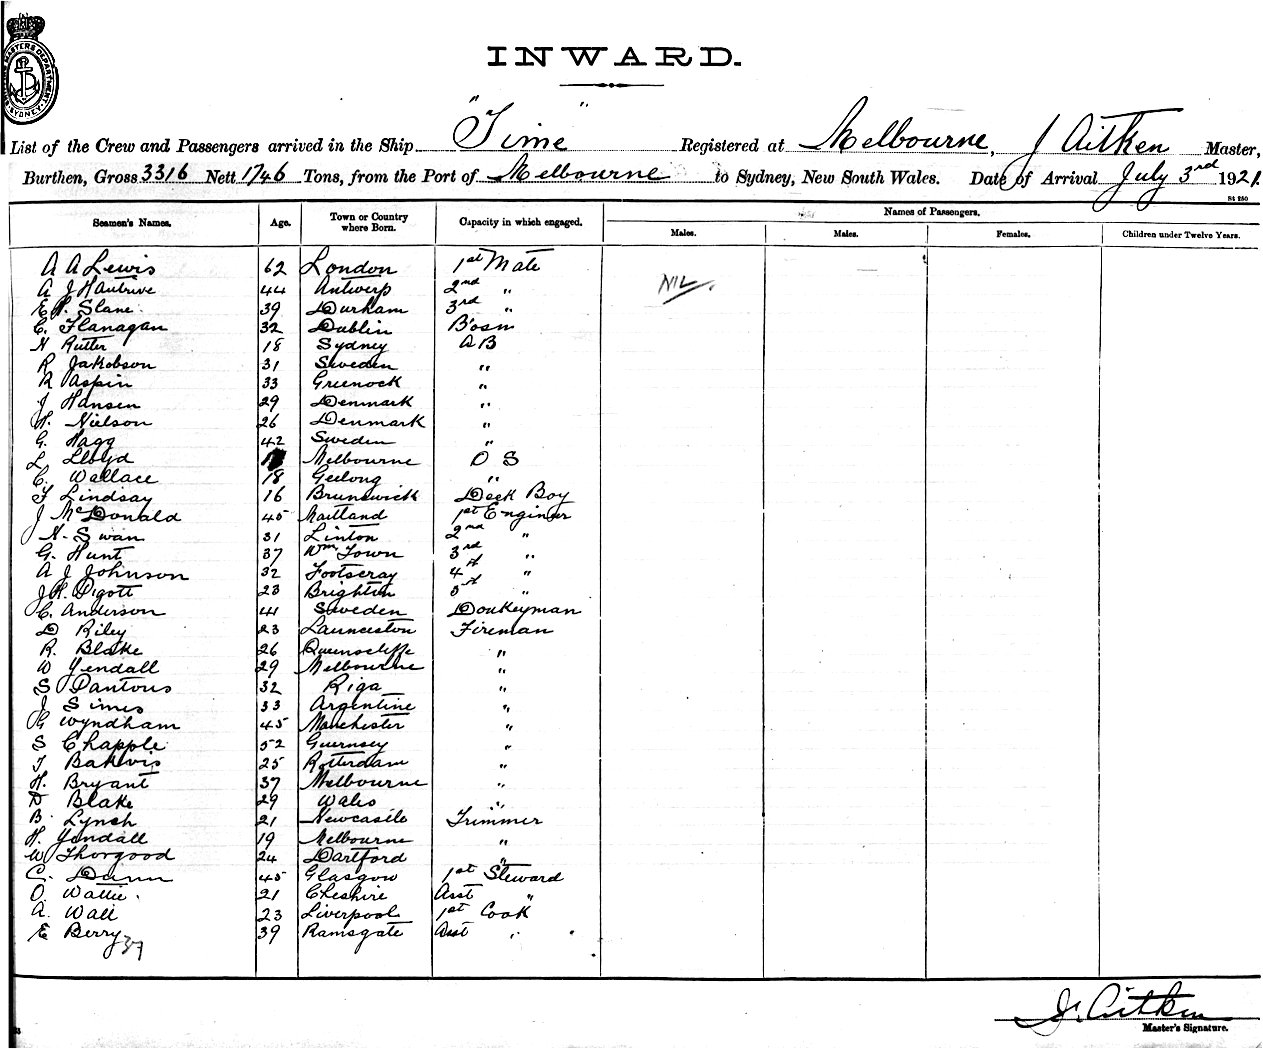 MASTERS DEPARTMENT SYDNEY
INWARD.
List of the Crew and Passengers arrived in the Ship "Time" Registered at Melbourne, J Aitken Master,
Burthen, Gross 3316 Nett 1746 Tons, from the Port of Melbourne to Sydney, New South Wales. Date of Arrival July 3rd 1921.
S4 250
Seamen's Names. Age. Town or Country where Born. Capacity in which engaged. Names of Passengers.
Males. Males. Females. Children under Twelve Years.
A A Lewis 62 London 1st Mate
A J Hautrive 44 Antwerp 2nd " NIL
E H. Slane 39 Durham 3rd "
C. Flanagan 32 Dublin B'osn
N Rutter 18 Sydney AB
R Jakobson 31 Sweden "
R Aspin 33 Greenock "
J Hansen 29 Denmark "
H. Nielson 26 Denmark "
G. Hagg 42 Sweden "
L. Lloyd Melbourne O S
C. Wallace 18 Geelong "
F Lindsay 16 Brunswick Deck Boy
J McDonald 45 Maitland 1st Enginer
N. Swan 31 Linton 2nd "
G. Hunt 37 Wm Town 3rd "
A J Johnson 32 Footscray 4th "
J H. Pigott 23 Brighton 5th "
C. Anderson 41 Sweden Donkeyman
D Riley 23 Launceston Fireman
R. Blake 26 Queenscliffe "
W Yendall 29 Melbourne "
S Pantous 32 Riga "
J Simes 33 Argentine "
G Wyndham 45 Manchester "
S Chapple 52 Guernsey "
T Bakvis 25 Rotterdam "
H. Bryant 37 Melbourne "
D Blake 29 Wales "
B. Lynch 21 Newcastle Trimmer
H. Yendall 19 Melbourne "
W Thorgood 24 Dartford "
C. Dunn 45 Glasgow 1st Steward
O. Wattie. 21 Cheshire Asst "
A. Wall 23 Liverpool 1st Cook
E Berry 39 Ramsgate Asst "
37
J. Aitken
Master's Signature.